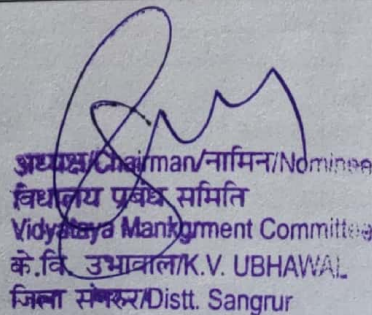 अध्यक्ष/Chairman/नामिन/Nominee
विधालय प्रबंध समिति
Vidyalaya Mankgrment Committee
के.वि. उभावाल/K.V. UBHAWAL
जिला संगरुर/Distt. Sangrur